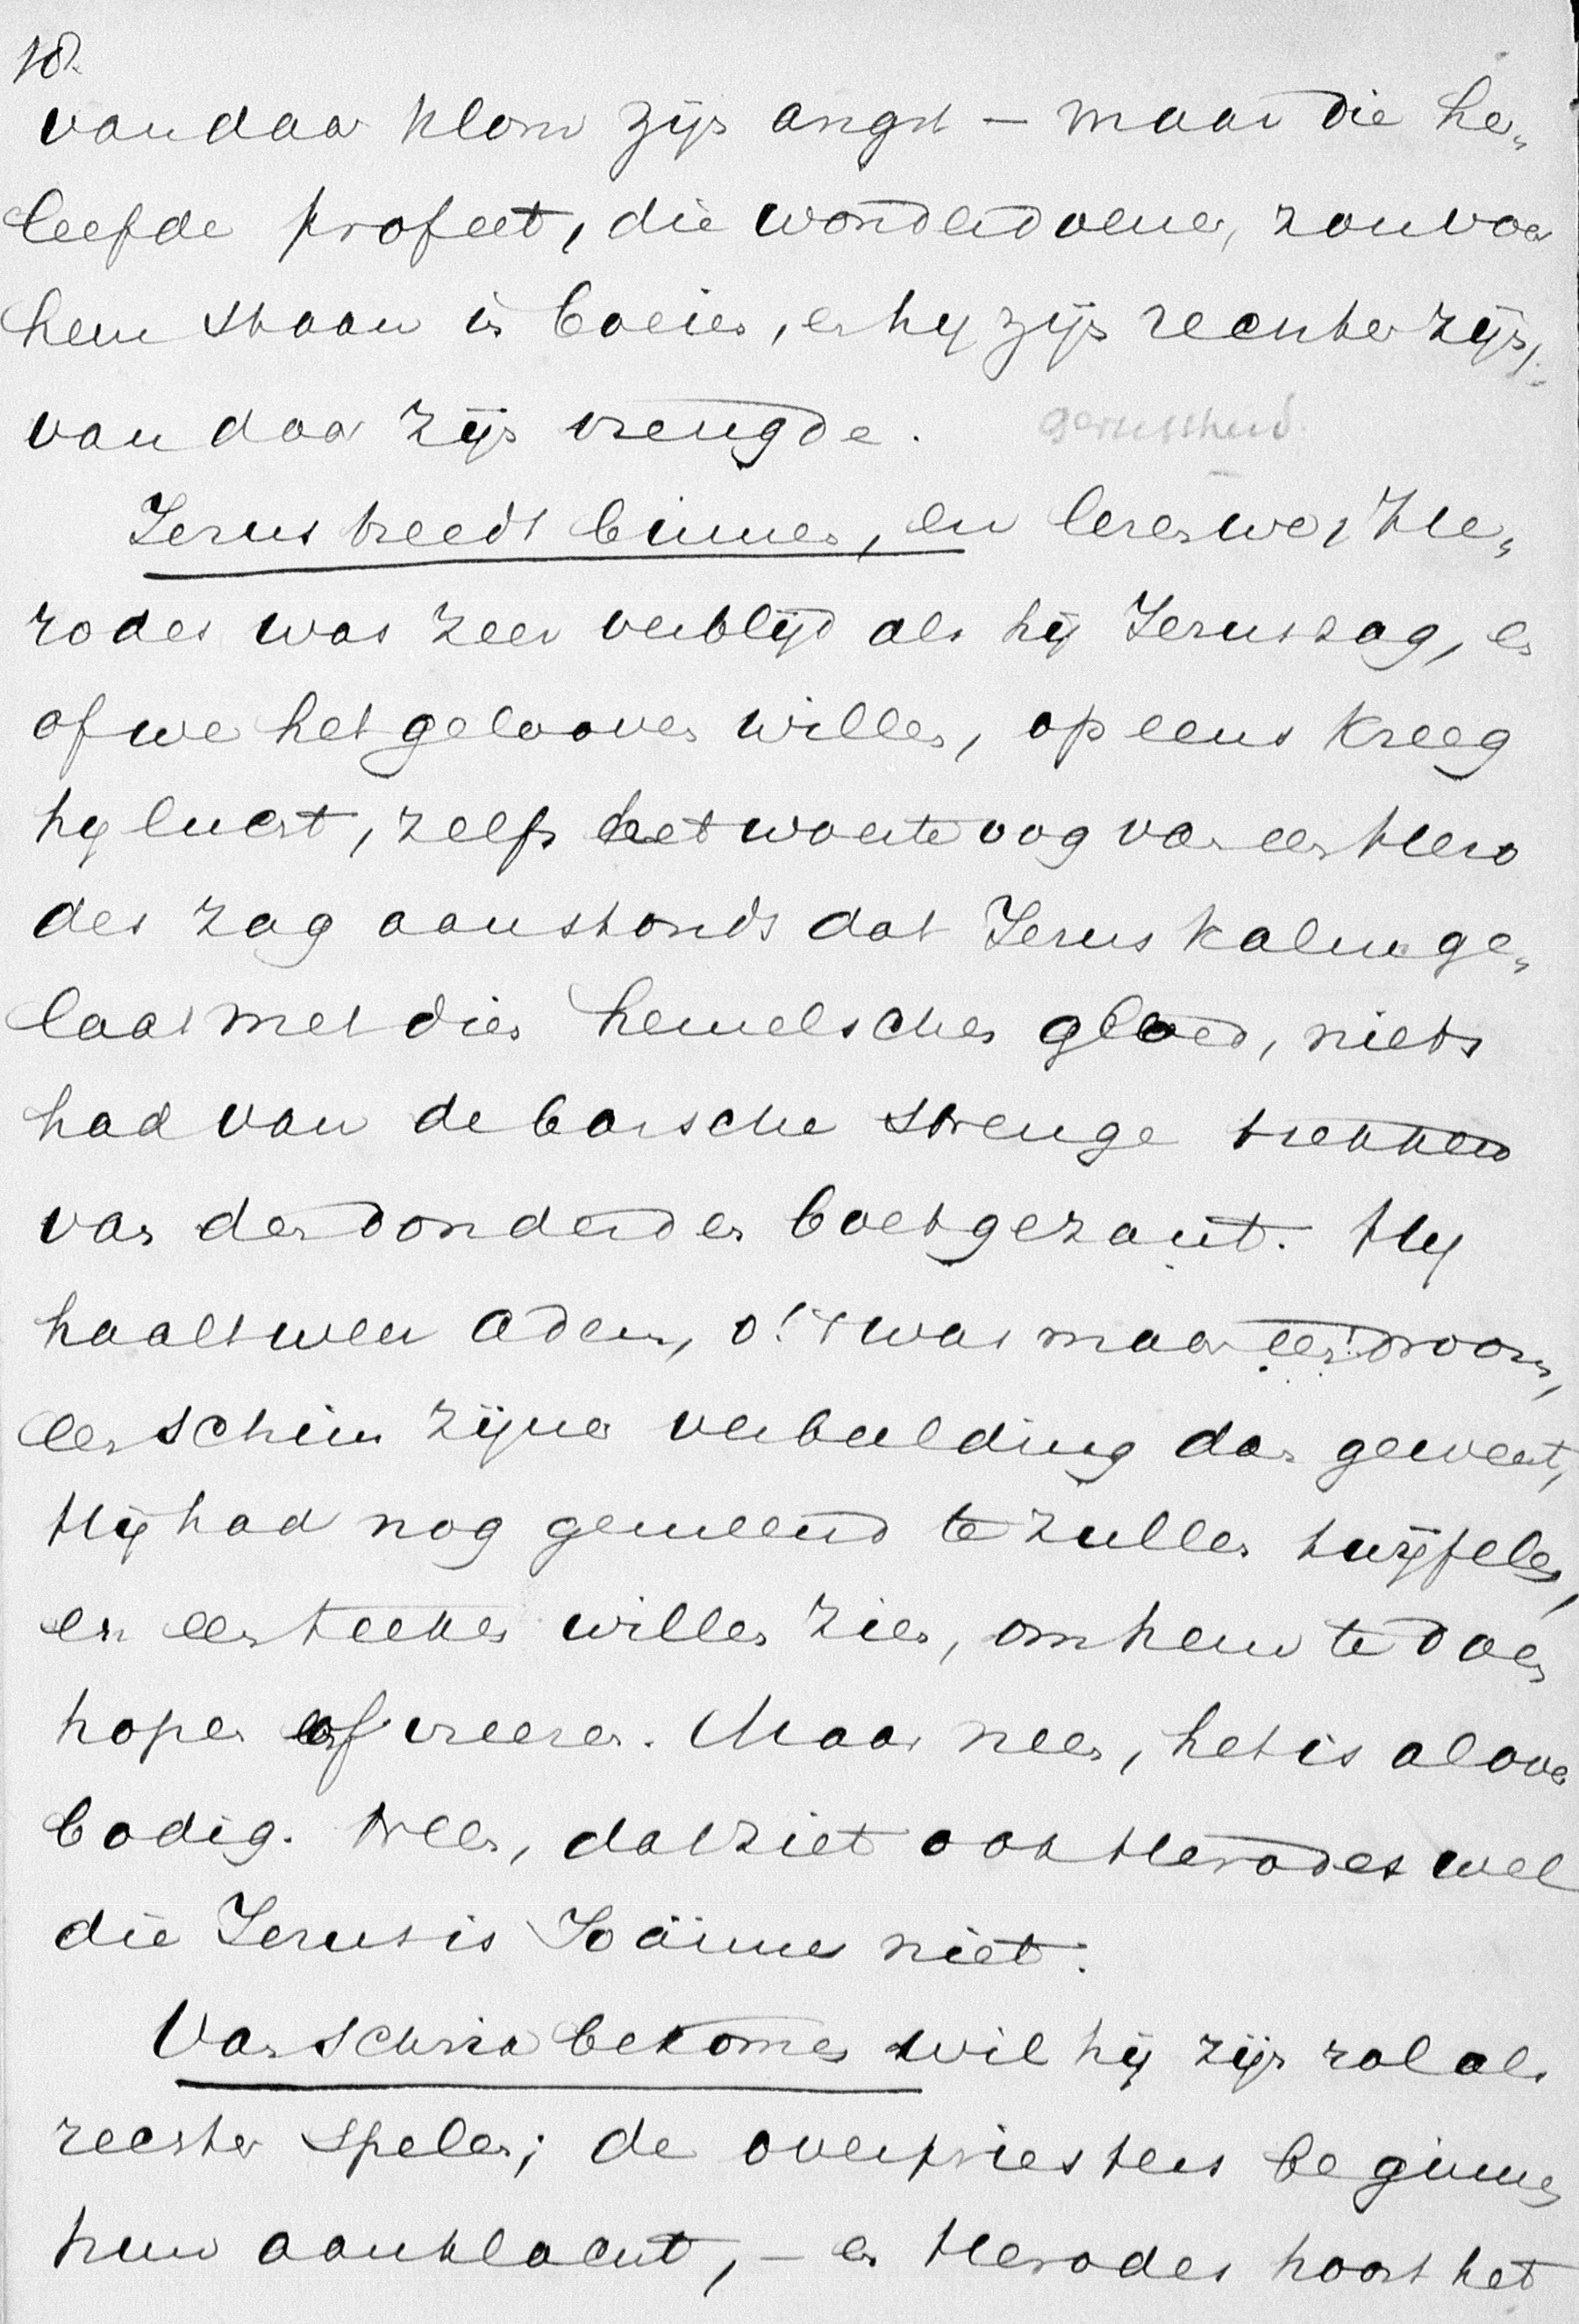 18.
van daar klom zijn angst – maar die be„
leefde profeet, die wonderdoener, zou voor
hem staan in boeien, en hij zijn rechter zijn,
van daar zijn vreugde. gerustheid.
Jezus treedt binnen, en lezen we, He„
rodes was zeer verblijd als hij Jezus zag, en
of we het gelooven willen, op eens kreeg
hij lucht, zelfs het woeste oog van een Hero
des zag aanstonds dat Jezus kalm ge„
laat met dien hemelschen gloed, niets
had van de barsche strenge trekken
van den donderden boetgezant. Hij
haalt weer adem, o! 't was maar een droom,
een schim zijner verbeelding dan geweest,
Hij had nog gemeend te zullen twijfelen,
en een teeken willen zien, om hem te doen
hopen of vreezen. Maar neen, het is al over
bodig. Neen, dat ziet ook Herodes wel
die Jezus is Joännes niet.
Van schrik bekomen wil hij zijn rol als
rechter spelen; de overpriesters beginnen
hun aanklacht, – en Herodes hoort het